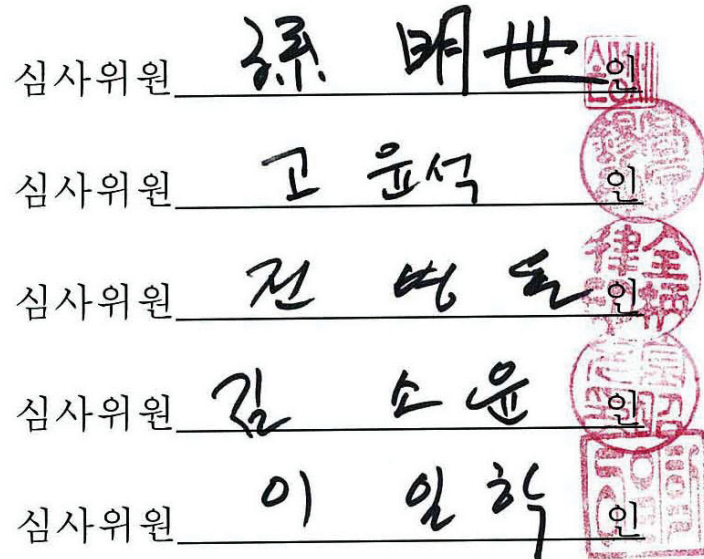 심사위원 孫 明 世 인
심사위원 고 윤석 인
심사위원 전 병 인
심사위원 김 소 윤 인
심사위원 이 일 학 인